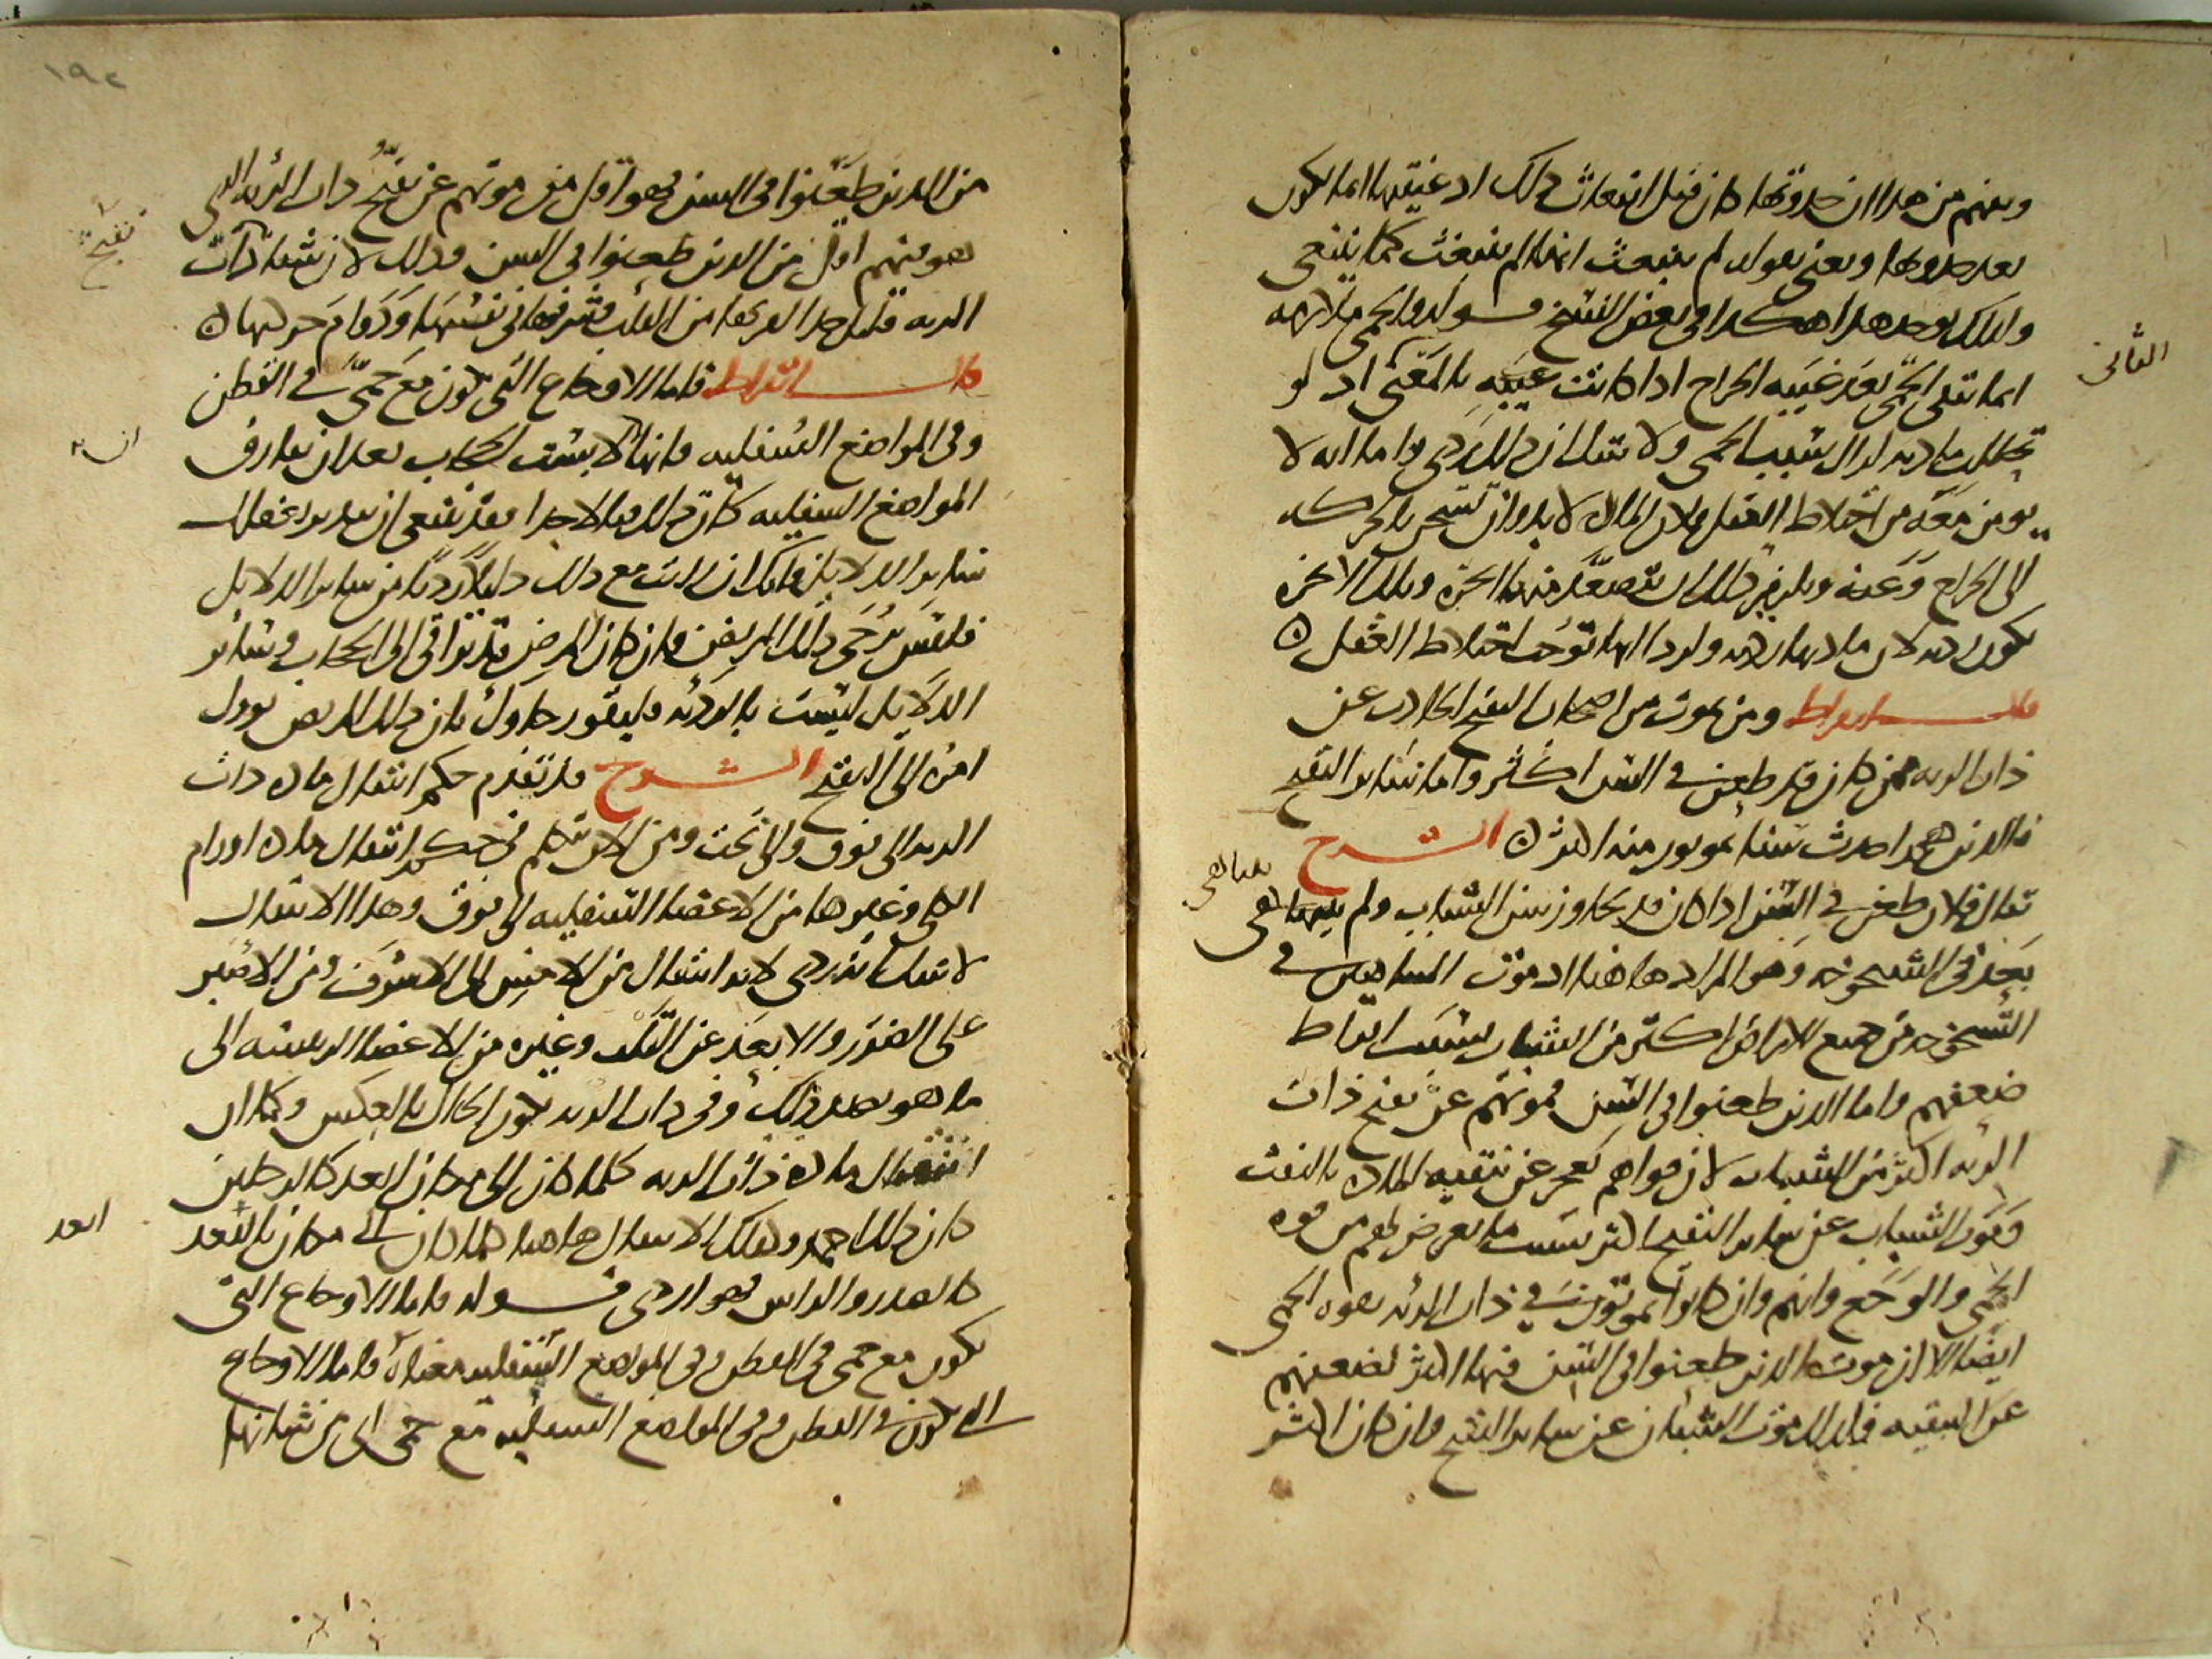 ويفهم من هذا ان حدوثها كان قبل انبعاث ذلك اذ غيبتها انما يكون
بعد حدوثها ويعني بقوله لم ينبعث انها لم ينبعث كما ينبغي
ولذلك يوجد هذا هكذا في بعض النسخ قوله والحمى ملازمة
الثاني
انما تبقى الحمى بعد غيبة الخراج اذا كانت غيبته بالمعنى اذ لو
تحللت مادته لزال سبب الحمى ولا شك ان ذلك ردى واما انه لا
يومن معه من اختلاط العقل فلان المادة لا بد وان تسخن بالحركة
الى الخراج وعنه ويلزم ذلك ان يتصعد منها ابخرة وتلك الابخرة
تكون رديه لان مادتها رديه ولرداءتها توجب اختلاط العقل ه
قال ابقراط ومن يموت من اصحاب التقيح الحادث عن
ذات الريه ممن كان قد طعن في السن اكثر واما سائر التقيح
فالذين هم احدث سنا يموتون منه اكثر ه الشرح
يقال فلان طعن في السن اذا كان قد تجاوز سن الشباب ولم يتناهى
يتناهى
بعد في الشيخوخه وهو المراد هاهنا اذ موت المتناهين في
الشيخوخه من جميع الامراض اكثر من الشباب بسبب افراط
ضعفهم واما الذين طعنوا في السن فموتهم عن تقيح ذات
الريه اكثر من الشباب لان قواهم تعجز عن تنقيه المادة بالنفث
وموت الشباب عن سائر التقيح اكثر بسبب ما يعرض لهم من قوه
الحمى والوجع وانهم وان كانوا يموتون في ذات الريه بقوه الحمى
ايضا الا ان موت الذين طعنوا في السن فيها اكثر لضعفهم
عن التنقيه فلذلك موت الشبان عن سائر التقيح وان كان اكثر
١٩٤
من الذين طعنوا في السن فهو اقل من موتهم عن تقيح ذات الريه الذي
تقيح
هو منهم اقل من الذين طعنوا في السن وذلك لان شفا ذات
الريه قليل جدا لقربها من القلب وشرفها في نفسها ودوام حركتها ه
قال ابقراط فاما الاوجاع التي تكون مع حمى في القطن
وفي المواضع السفليه فانها لابست الحجاب بعد ان تفارق
ان
المواضع السفليه كانت قتاله جدا فقد ينبغي ان تتدبر بعقلك
سائر الدلائل فانك ان رايت مع ذلك دليلا رديا من سائر الدلائل
فليس يرجى ذلك المريض وان كان المرض قد تراقى الى الحجاب وسائر
الدلايل ليست بالرديه فليقو رجاوك بان ذلك المريض يوول
امره الى التقيح الشرح قد تقدم حكم انتقال مادة ذات
الريه الى فوق والى تحت ومن الان يتكلم في حكم انتقال مادة اورام
الكلى وغيرها من الاعضا السفليه الى فوق وهذا الانتقال
لا شك انه ردى لانه انتقال من الاخس الى الاشرف ومن الاصبر
على الضرر والابعد عن القلب وغيره من الاعضا الرييسه الى
ما هو بضد ذلك وفي ذات الريه يكون الحال بالعكس وكما ان
انتقال مادة ذات الريه كلما كان الى مكان ابعد كالرجلين
كان ذلك احمد وكذلك الانتقال هاهنا كلما كان الى مكان بالبعد
ابعد
كالصدر والراس فهو اردى قوله فاما الاوجاع التي
تكون مع حمى في القطن وفي المواضع السفليه معناه فاما الاوجاع
التي تكون في القطن وفي المواضع السفليه مع حمى اي من شانها